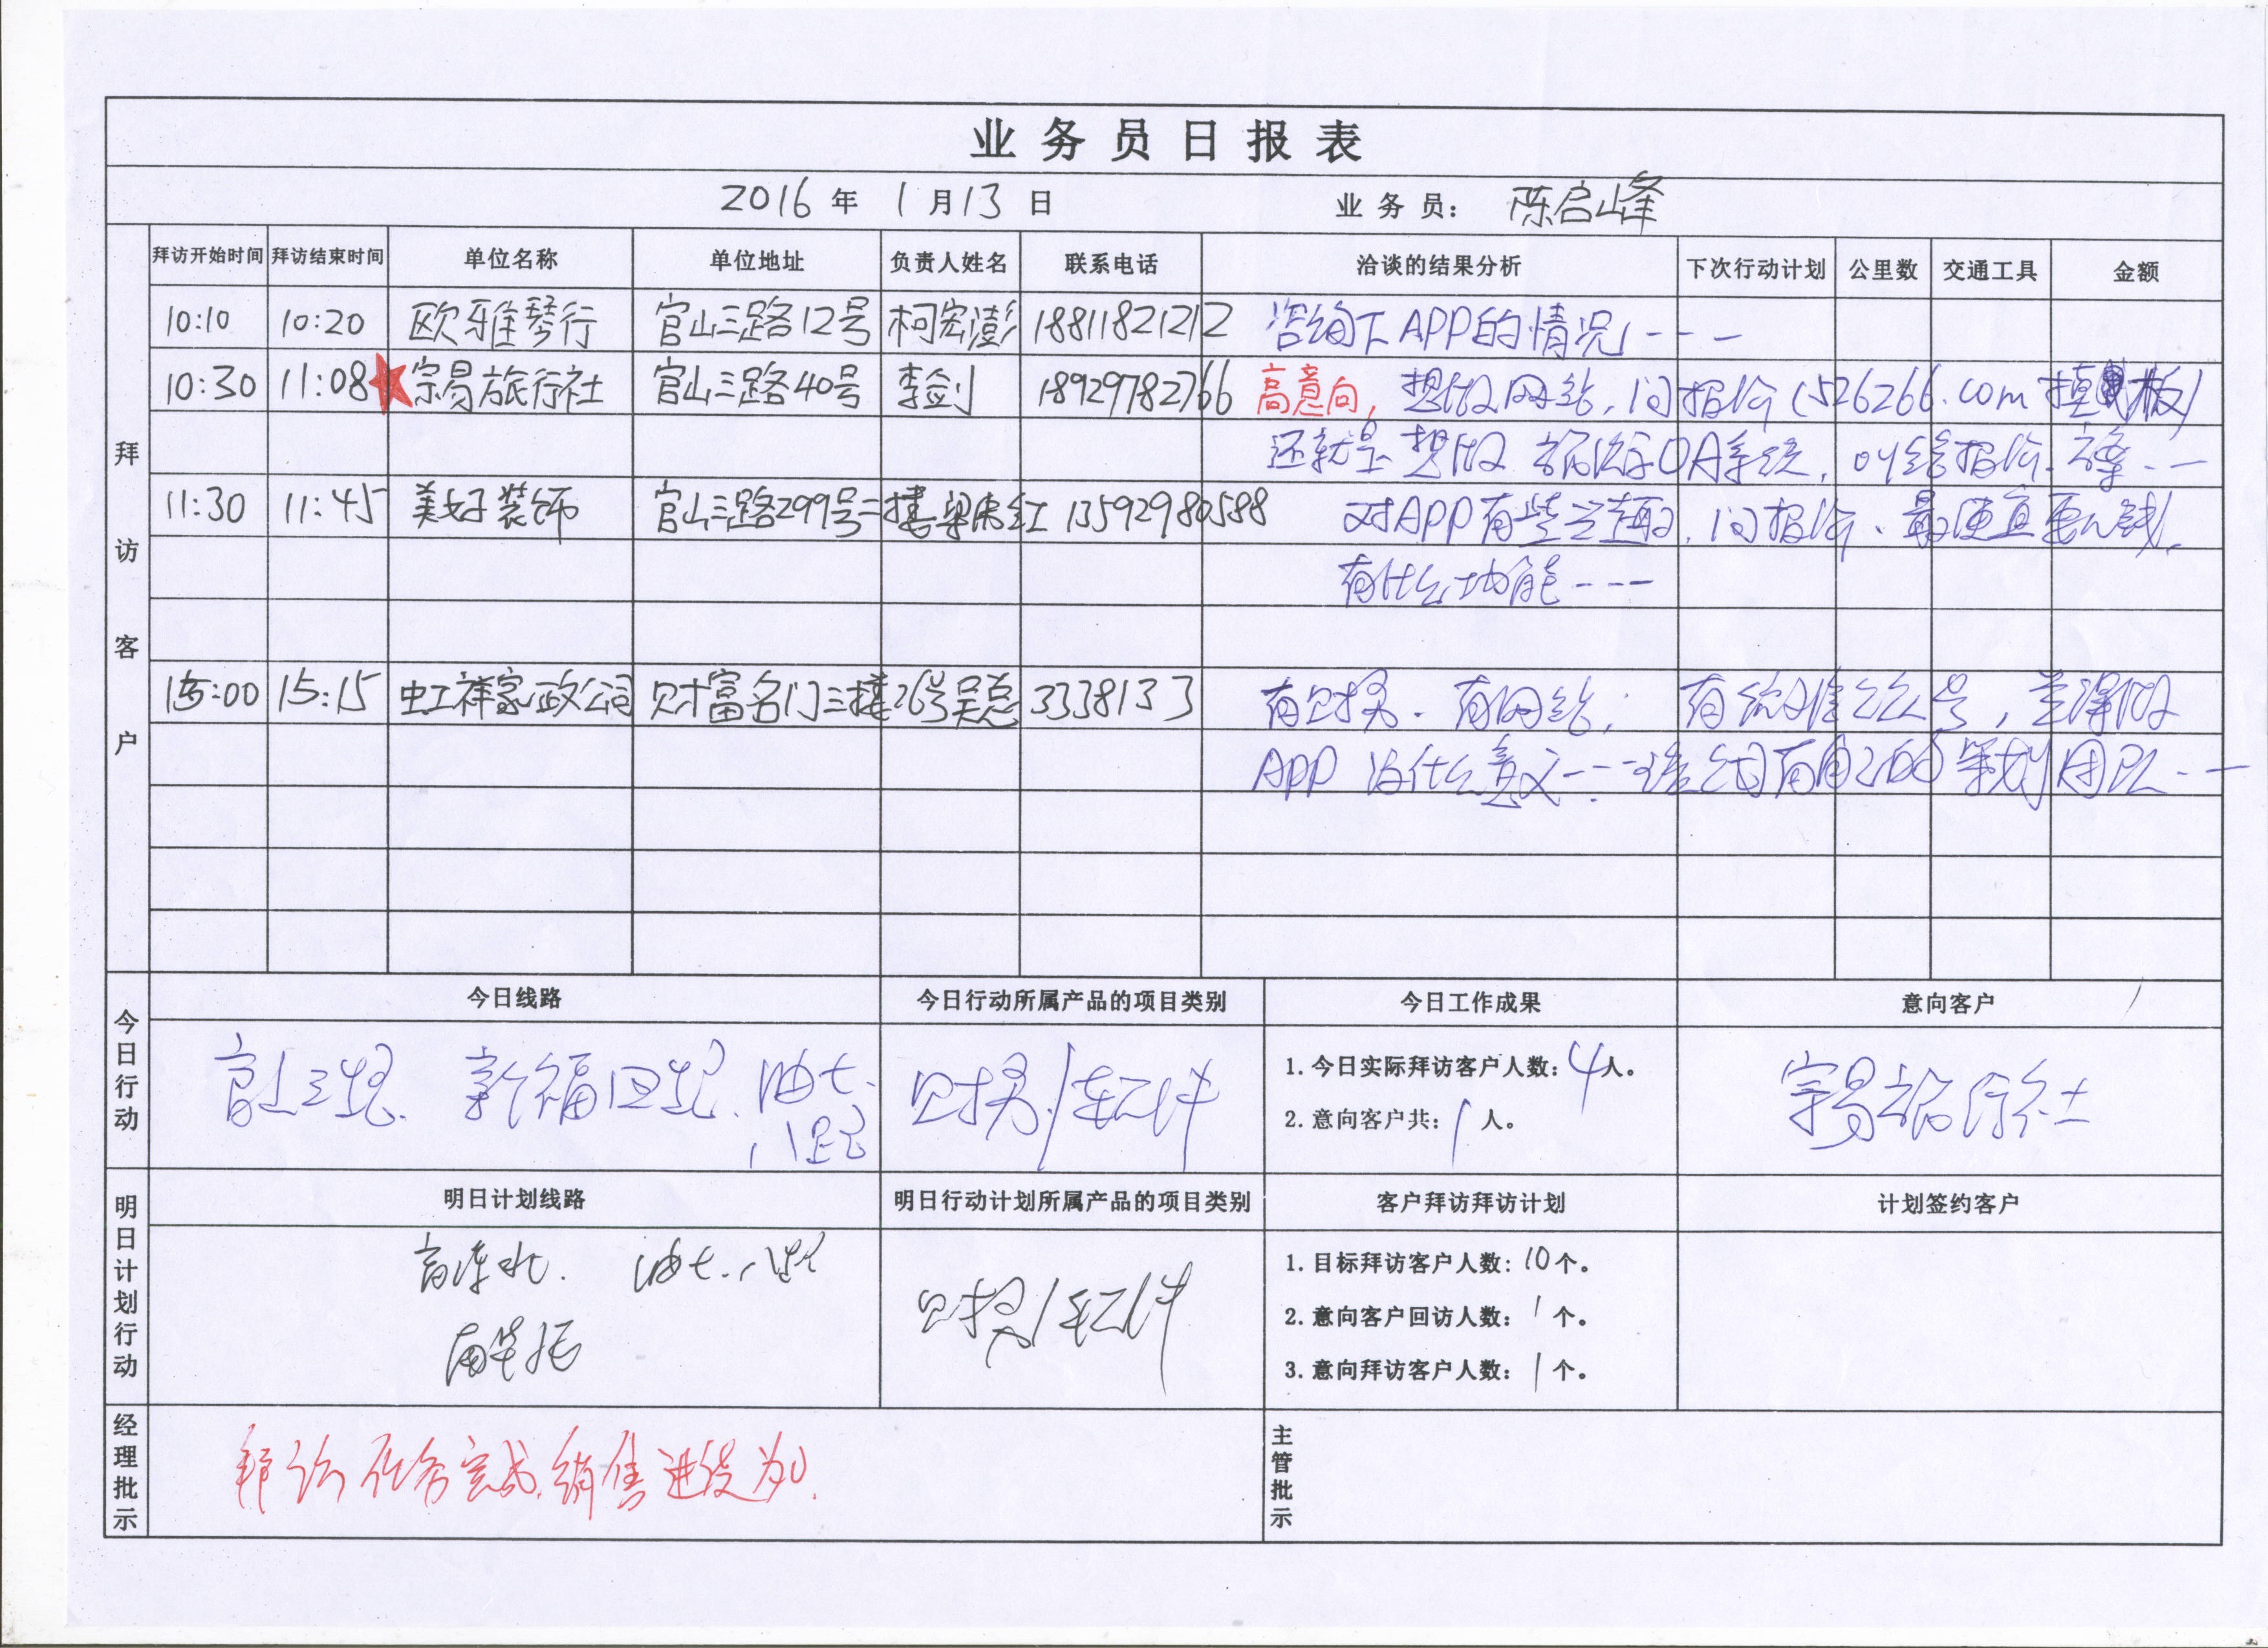 业务员日报表
2016 年 1 月 13 日 业务员: 陈启峰
拜访客户
拜访开始时间 拜访结束时间 单位名称 单位地址 负责人姓名 联系电话 洽谈的结果分析 下次行动计划 公里数 交通工具 金额
10:10 10:20 欧雅琴行 官山三路12号 柯宏澎 18811821212 咨询下APP的情况---
10:30 11:08 ★宗易旅行社 官山三路40号 李剑 18929782766 高意向, 想做网站,问报价(526266.com 模板)
还就是想做旅游OA系统,叫给报价.方案---
11:30 11:45 美好装饰 官山三路299号二楼 梁忠红 13592980588 对APP有些兴趣,问报价、最便宜要几钱,
有什么功能---
15:00 15:15 虹祥家政公司 财富名门三楼26号 吴总 3338133 有财务.有网站; 有微信公众号,觉得做
APP 没什么意义---该公司有自己的策划团队---
今日行动
今日线路 今日行动所属产品的项目类别 今日工作成果 意向客户
官山三路、新福四路、油七.八路 财务/软件
1.今日实际拜访客户人数: 4人。
2.意向客户共: 1人。
宗易旅行社
明日计划行动
明日计划线路 明日行动计划所属产品的项目类别 客户拜访拜访计划 计划签约客户
油七.八路
财务/软件
1.目标拜访客户人数: 10个。
2.意向客户回访人数: 1个。
3.意向拜访客户人数: 1个。
经理批示
拜访任务完成,销售进度为0.
主管批示